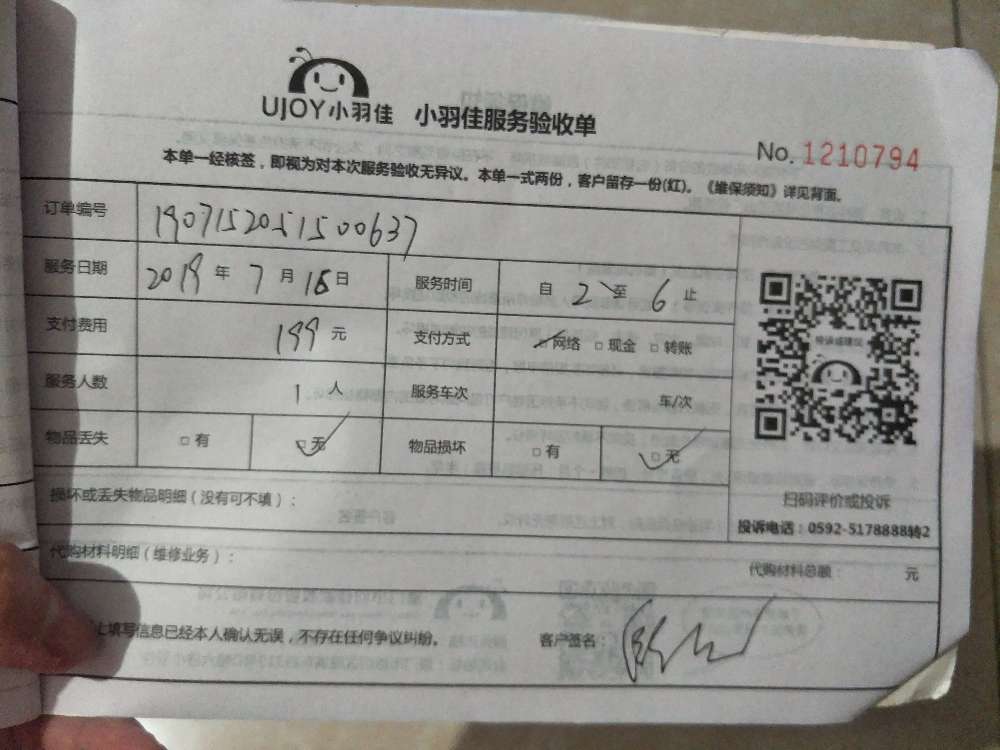 UJOY小羽佳 小羽佳服务验收单
No. 1210794
本单一经核签，即视为对本次服务验收无异议。本单一式两份，客户留存一份(红)。《维保须知》详见背面。
订单编号 1907152051500637
服务日期 2019 年 7 月 16 日 服务时间 自 2 至 6 止
支付费用 199 元 支付方式 ☑网络 □现金 □转账
服务人数 1 人 服务车次 车/次
物品丢失 □有 ☑无 物品损坏 □有 ☑无
投诉或建议
扫码评价或投诉
投诉电话：0592-5178888转2
损坏或丢失物品明细（没有可不填）：
代购材料明细（维修业务）：
代购材料总额： 元
上填写信息已经本人确认无误，不存在任何争议纠纷。 客户签名：